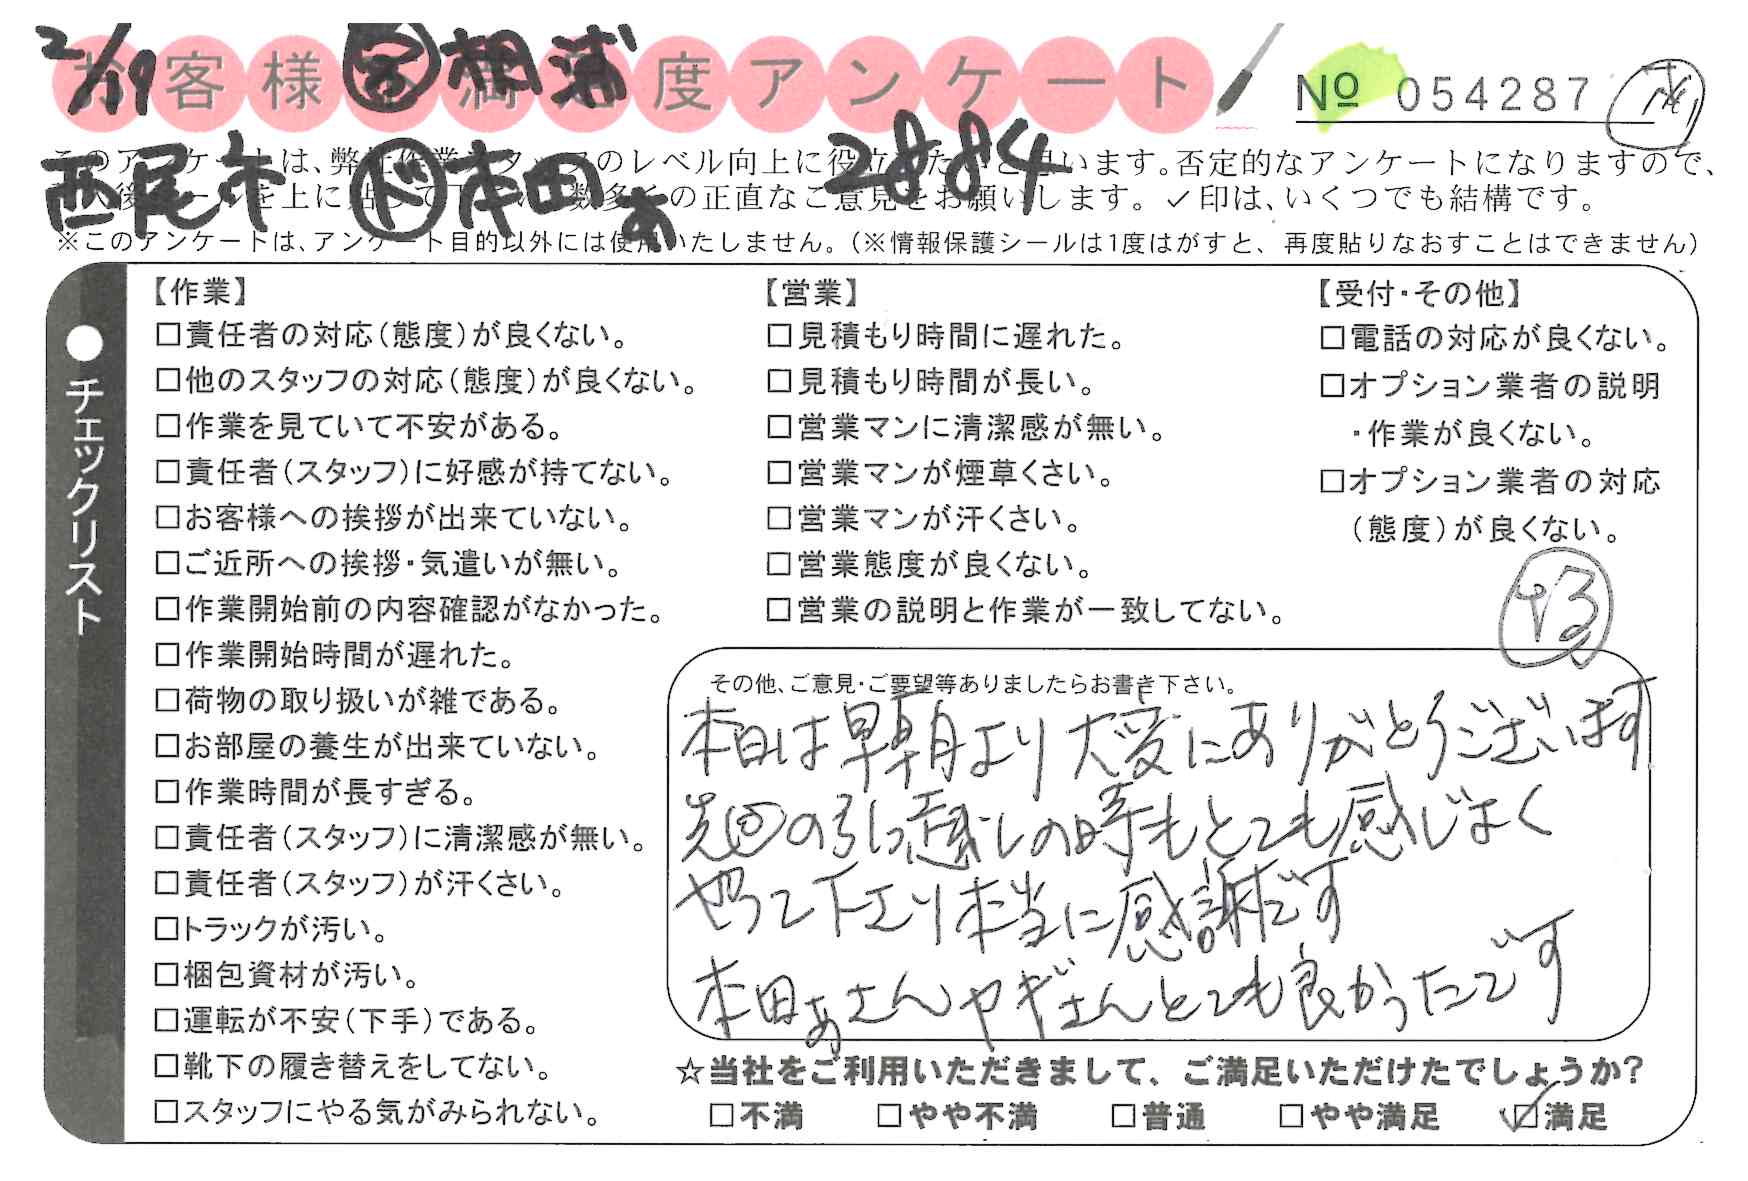 2/19 お客様満足度アンケート № 054287
西尾市 ㋣本田あ 2884
このアンケートは、弊社作業スタッフのレベル向上に役立てたいと思います。否定的なアンケートになりますので、
記入後シールを上に貼して下さい。数多くの正直なご意見をお願いします。✓印は、いくつでも結構です。
※このアンケートは、アンケート目的以外には使用いたしません。（※情報保護シールは1度はがすと、再度貼りなおすことはできません）
●チェックリスト
【作業】
□責任者の対応（態度）が良くない。
□他のスタッフの対応（態度）が良くない。
□作業を見ていて不安がある。
□責任者（スタッフ）に好感が持てない。
□お客様への挨拶が出来ていない。
□ご近所への挨拶・気遣いが無い。
□作業開始前の内容確認がなかった。
□作業開始時間が遅れた。
□荷物の取り扱いが雑である。
□お部屋の養生が出来ていない。
□作業時間が長すぎる。
□責任者（スタッフ）に清潔感が無い。
□責任者（スタッフ）が汗くさい。
□トラックが汚い。
□梱包資材が汚い。
□運転が不安（下手）である。
□靴下の履き替えをしてない。
□スタッフにやる気がみられない。
【営業】
□見積もり時間に遅れた。
□見積もり時間が長い。
□営業マンに清潔感が無い。
□営業マンが煙草くさい。
□営業マンが汗くさい。
□営業態度が良くない。
□営業の説明と作業が一致してない。
【受付・その他】
□電話の対応が良くない。
□オプション業者の説明
・作業が良くない。
□オプション業者の対応
（態度）が良くない。
その他、ご意見・ご要望等ありましたらお書き下さい。
本日は早朝より大変にありがとうございます
先回の引っ越しの時もとても感じよく
やって下さり本当に感謝です
本田あさんヤギさんとても良かったです
☆当社をご利用いただきまして、ご満足いただけたでしょうか？
□不満 □やや不満 □普通 □やや満足 ☑満足